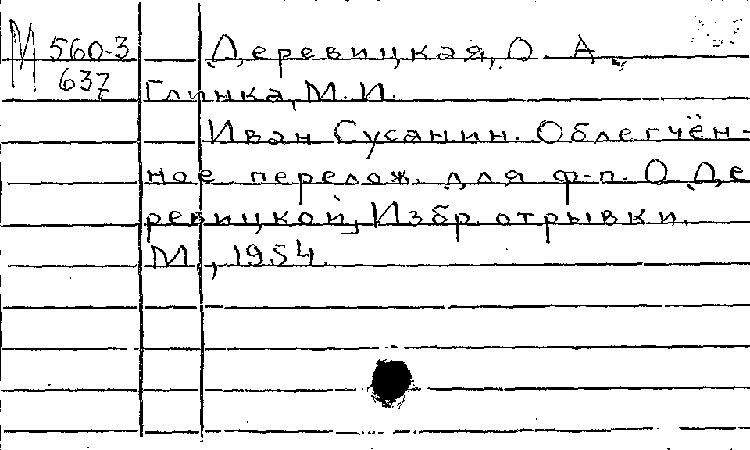 М 560-3 Деревицкая, О. А.
637 Глинка, М. И.
Иван Сусанин. Облегчён-
ное перелож. для ф-п. О. Де
ревицкой, Избр. отрывки.
М., 1954.